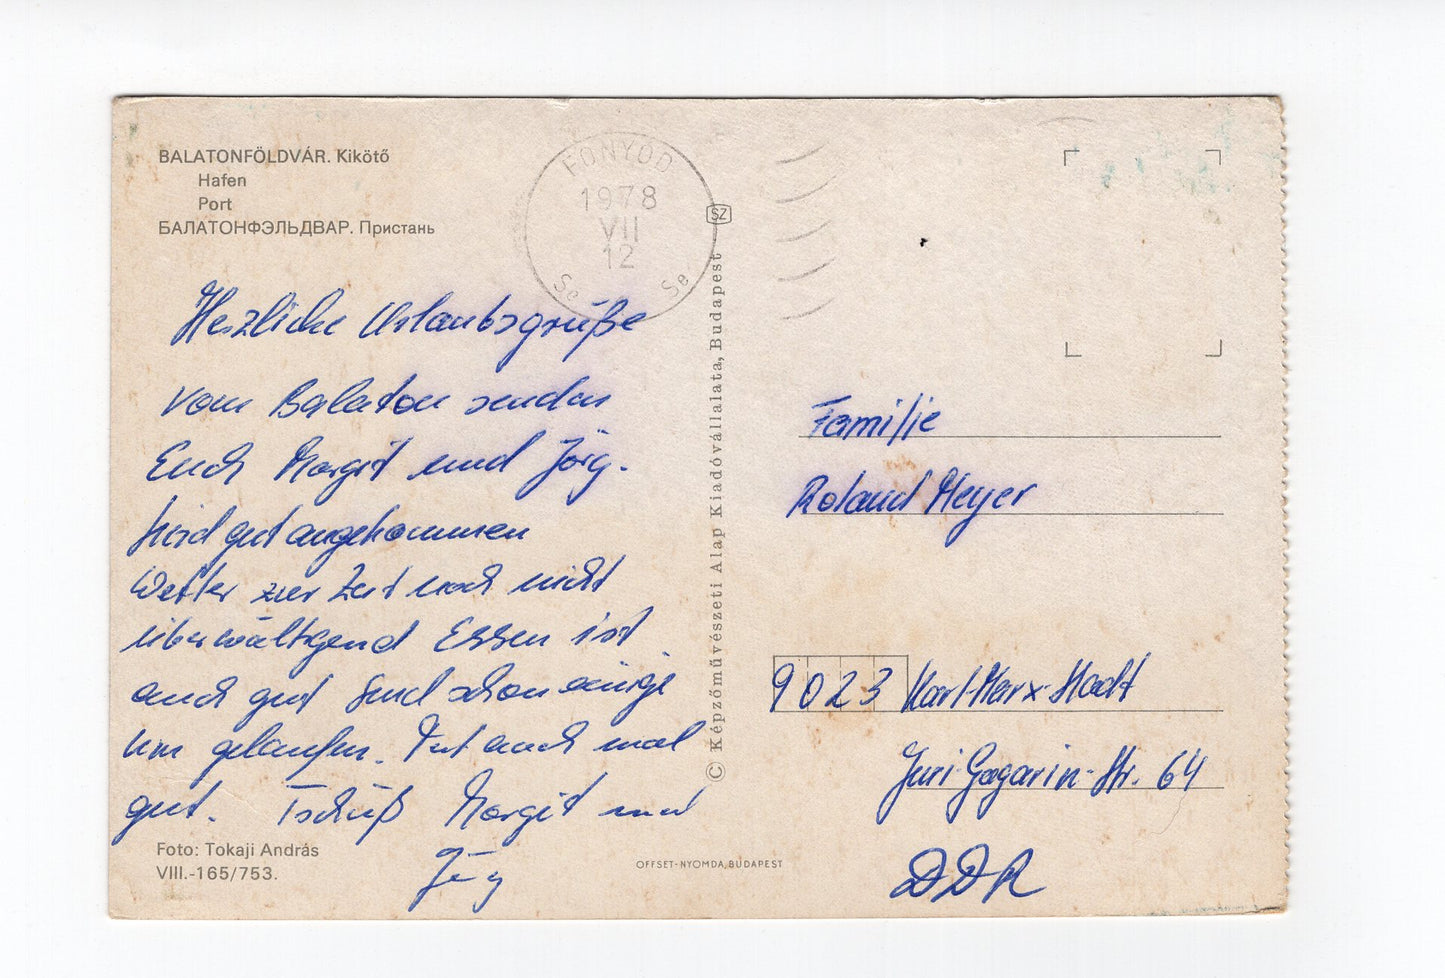 BALATONFÖLDVÁR. Kikötő
Hafen
Port
БАЛАТОНФЭЛЬДВАР. Пристань
FONYÓD
1978
VII
12
Se Se
SZ
Herzliche Urlaubsgrüße
vom Balaton senden
Euch Margit und Jörg.
Sind gut angekommen
Wetter zur Zeit noch nicht
überwältigend Essen ist
auch gut Sind schon einige
km gelaufen. Tut auch mal
gut. Tschüß Margit und
Jörg
Foto: Tokaji András
VIII.-165/753.
© Képzőművészeti Alap Kiadóvállalata, Budapest
OFFSET-NYOMDA, BUDAPEST
Familie
Roland Meyer
9023 Karl-Marx-Stadt
Juri-Gagarin-Str. 64
DDR